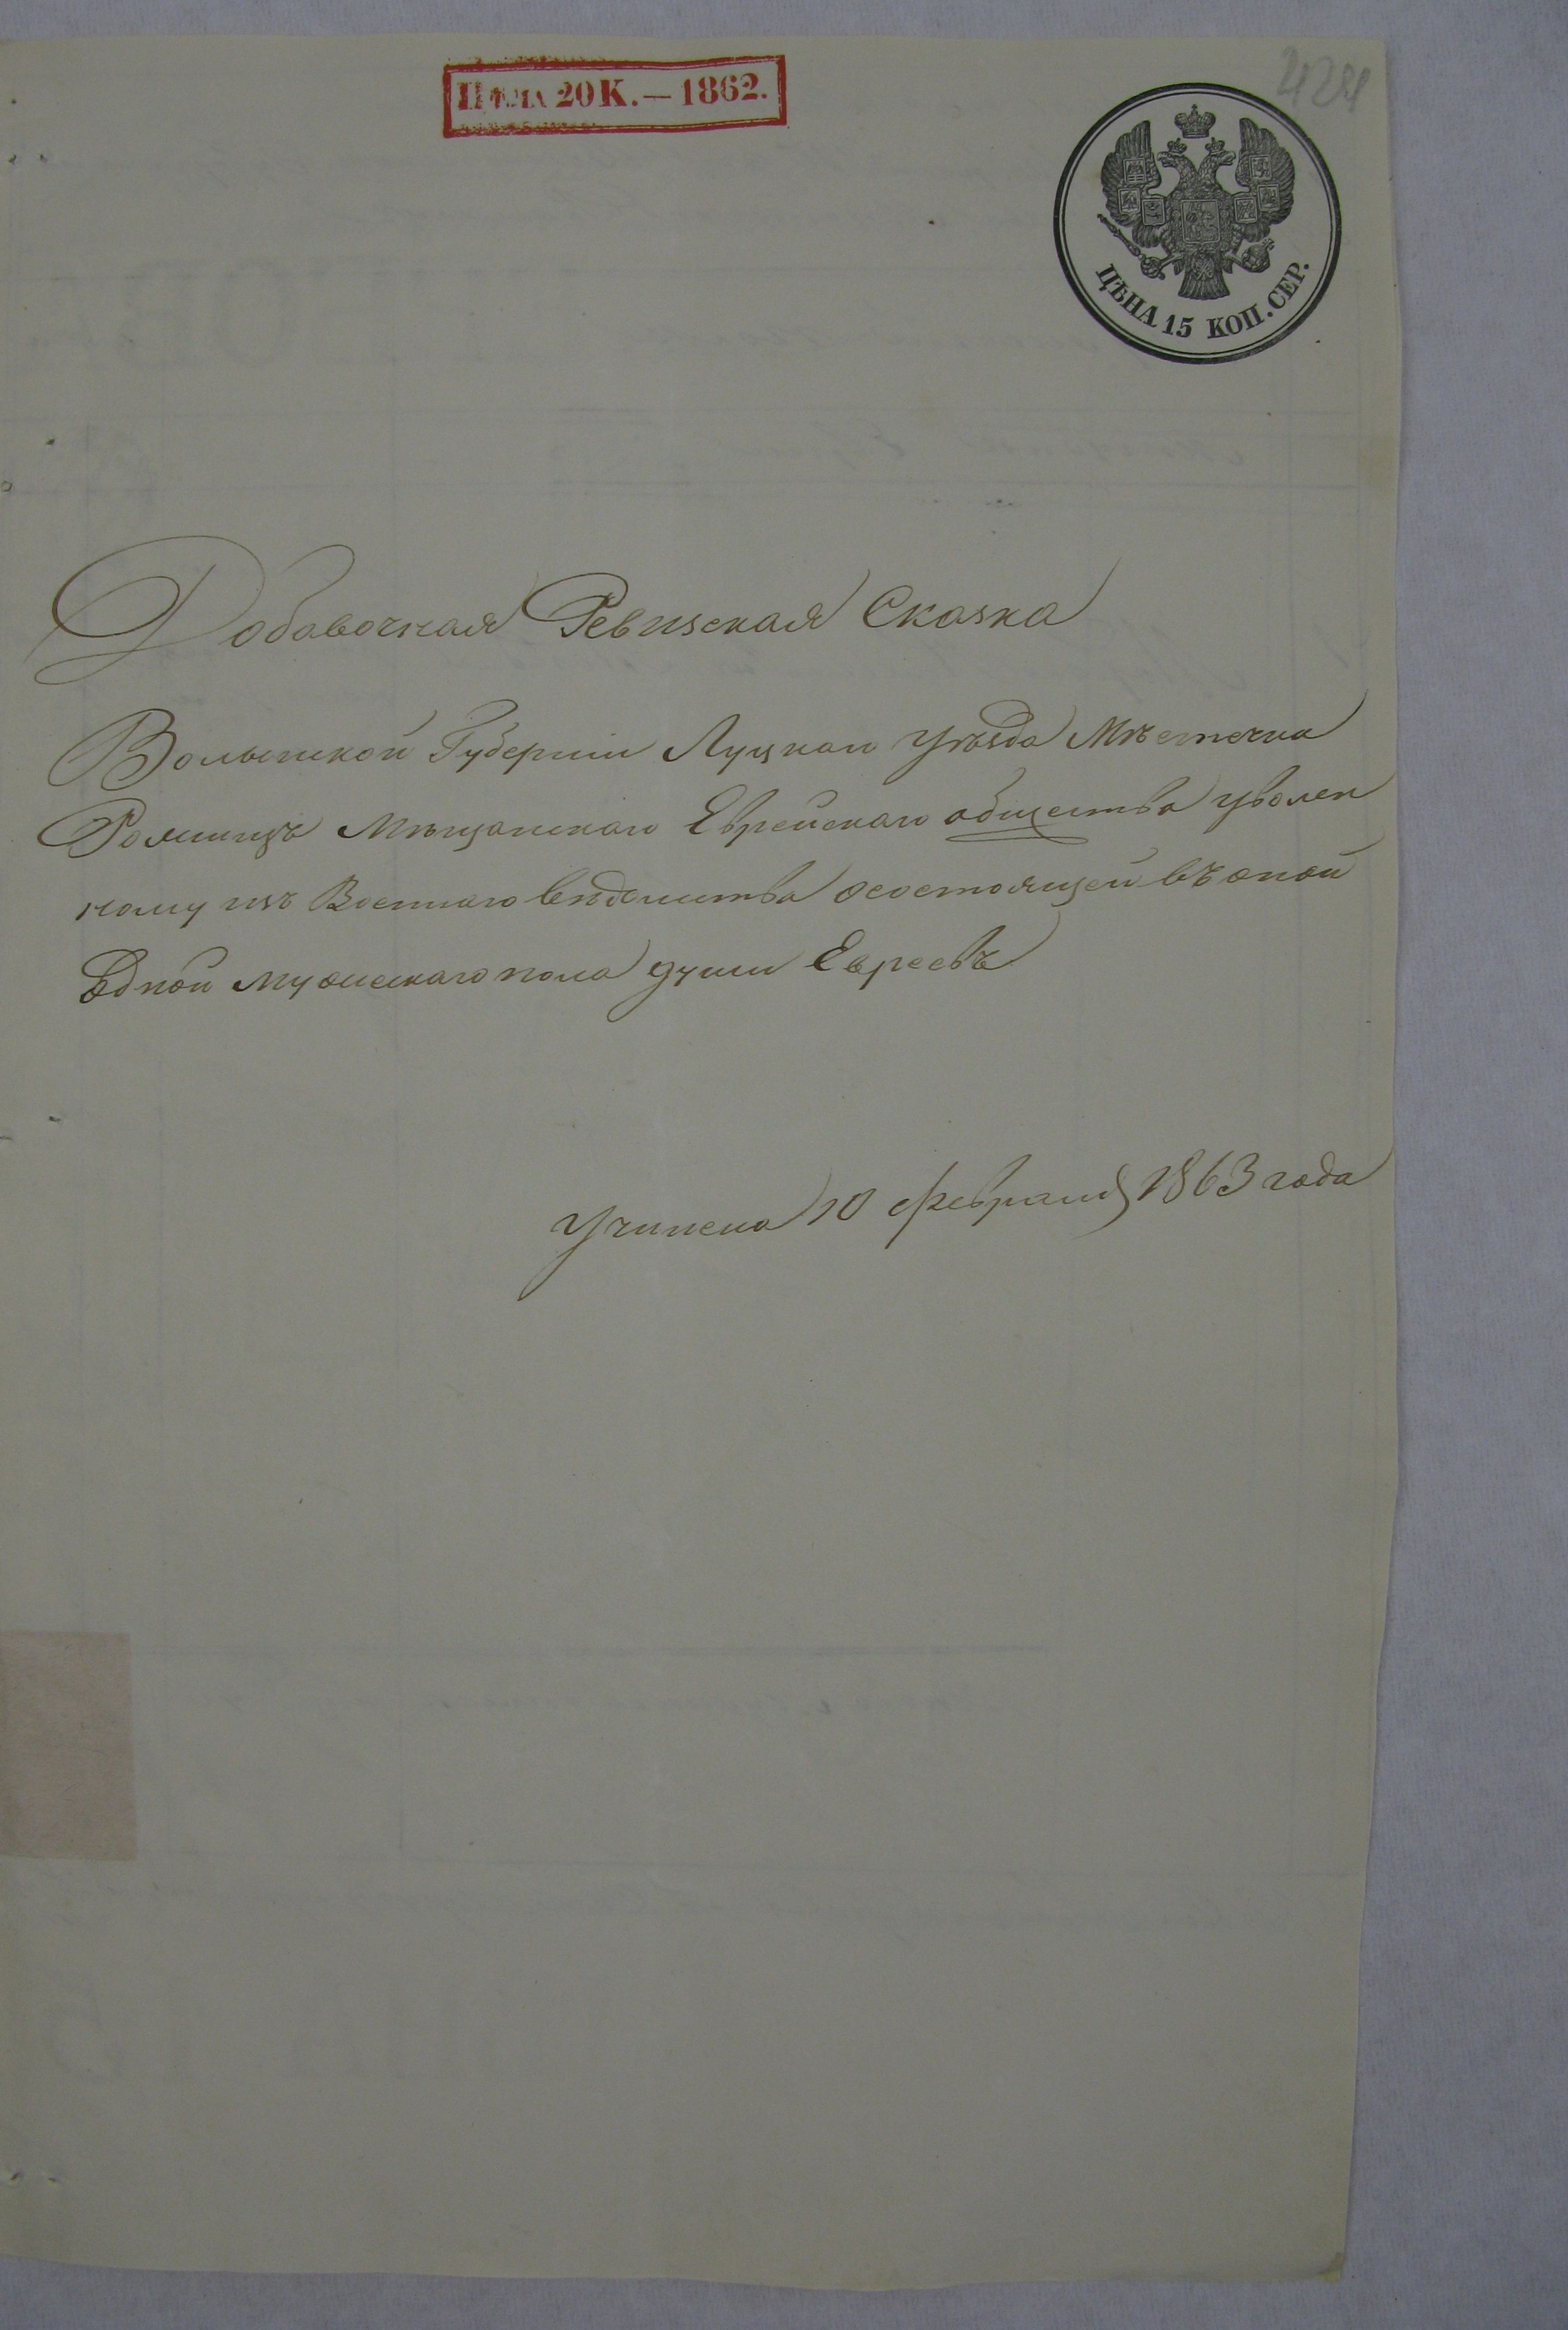 424
Цѣна 20 К. — 1862.
ЦѢНА 15 КОП. СЕР.
Добавочная Ревизская Сказка
Волынской Губерніи Луцкаго Уѣзда Мѣстечка
Рожищъ Мѣщанскаго Еврейскаго общества уволен
ному изъ Военнаго вѣдомства состоящей въ оной
Одной мужескаго пола души Евреевъ
Учинена 10 февраля 1863 года